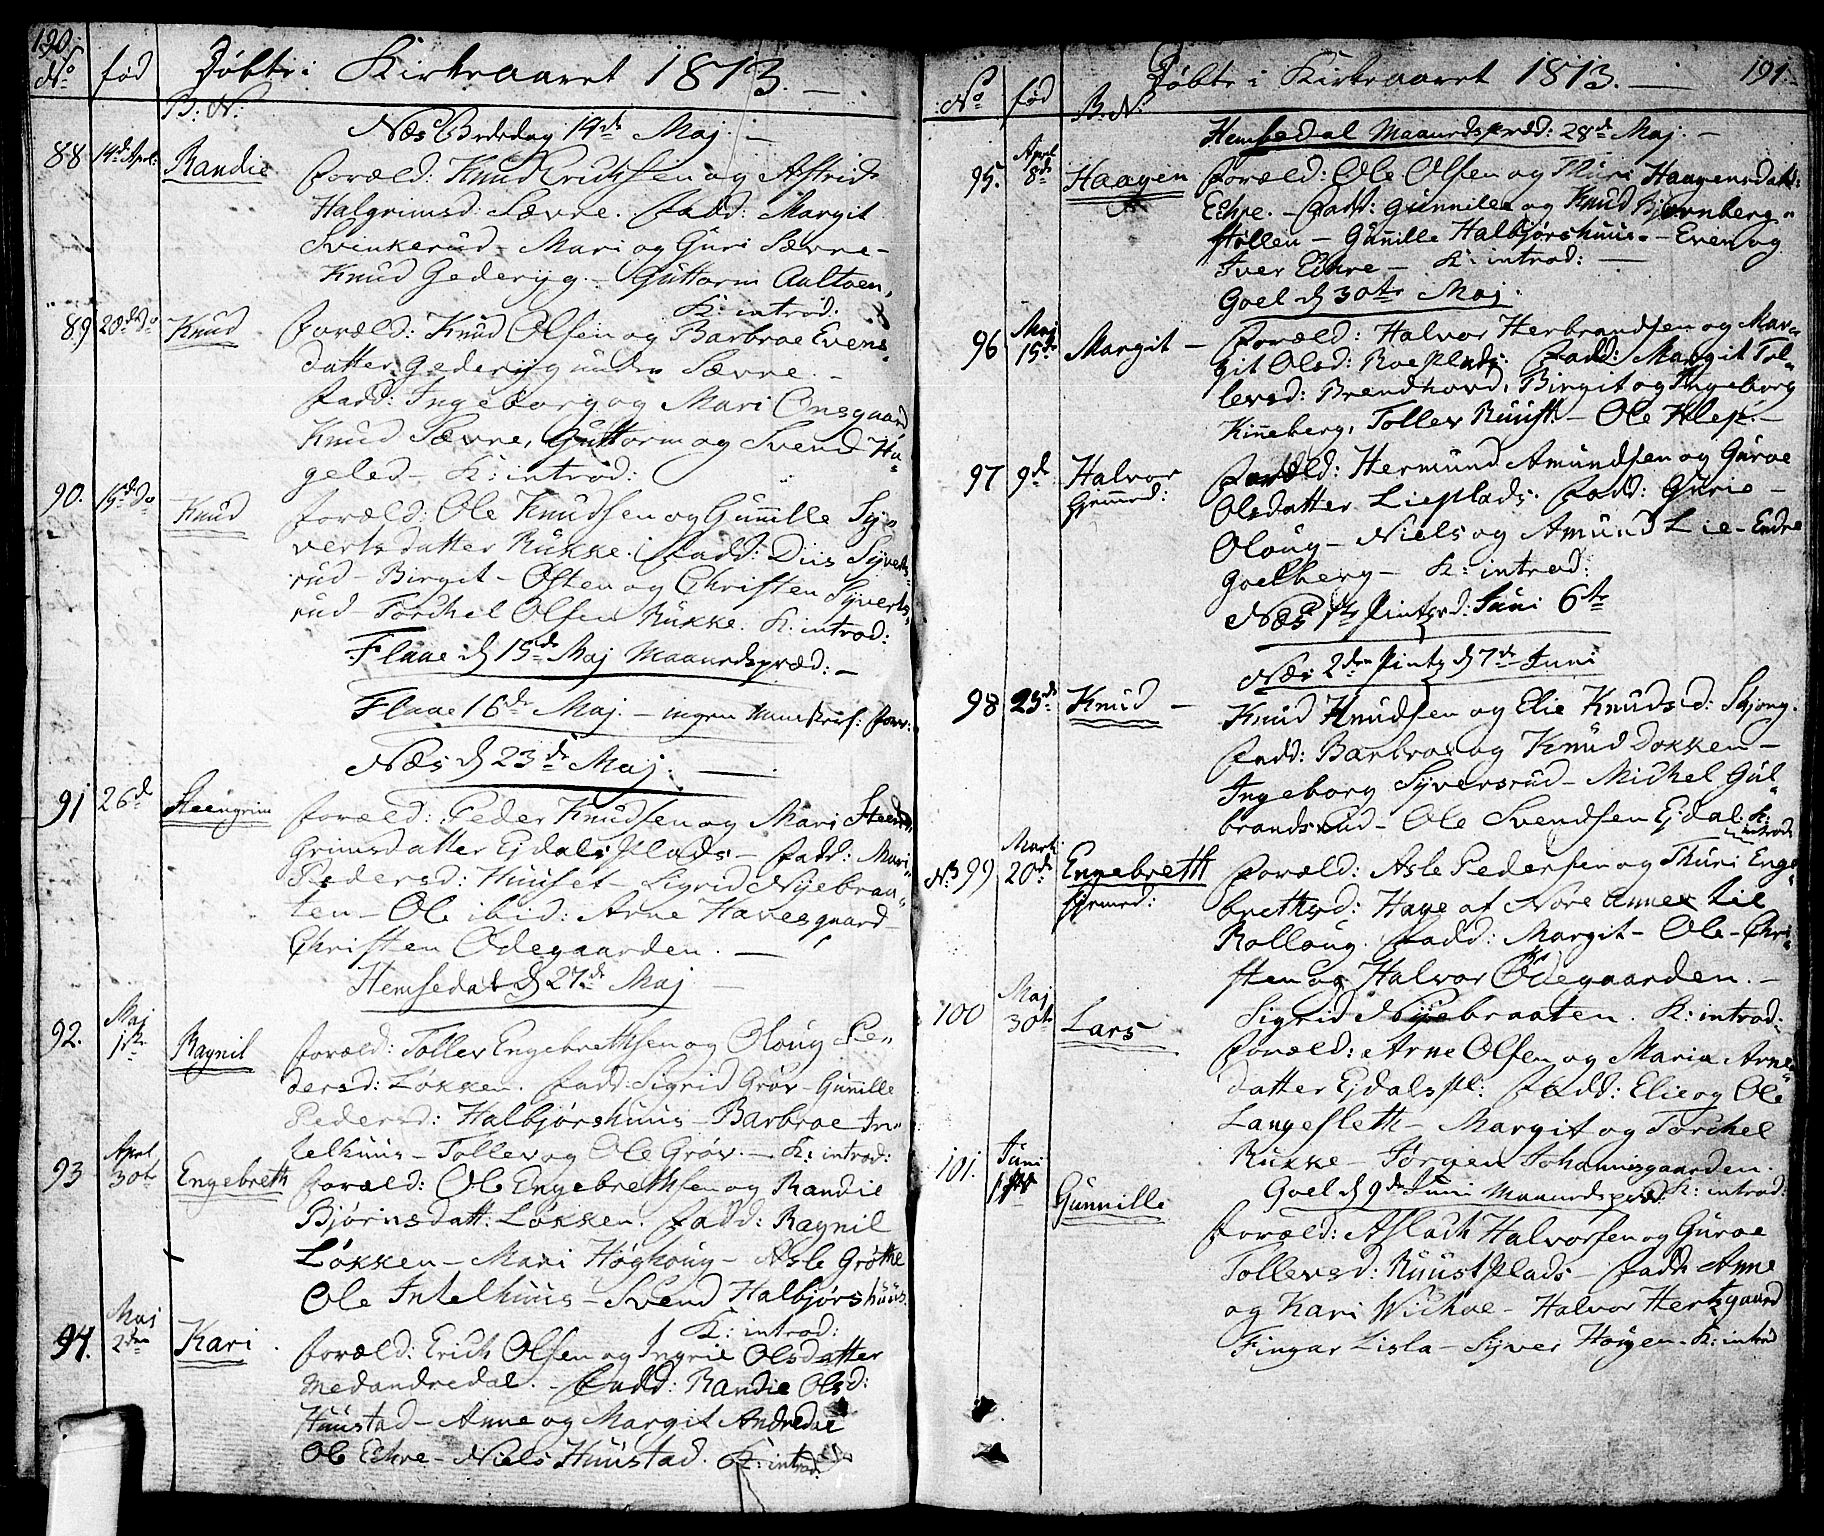 190.
No fød Døbte i Kirkeaaret 1813. —
B: N:
Næs Bededag 14de Maj. —
88 14de Apl: Randie Foræld: Knud Erichsen og Astrid
Halgrimsd: Sævre. Fadd: Margit
Svinkerud – Mari og Guri Sævre –
Knud Gederyg – Guttorm Aaltoen,
K: introd:
89 20de do Knud Foræld: Knud Olsen og Barbroe Evens-
datter Gederyg under Sævre. –
Fadd: Ingeborg og Mari Onsgaard
Knud Sævre, Guttorm og Svend Ha-
geled – K: introd:
90. 15de do Knud Foræld: Ole Knudsen og Gunnille Sy-
vertsdatter Rukke. Fadd: Diis Syverts-
rud – Birgit – Osten og Christen Syverts-
rud – Torchel Olsen Rukke. K: introd:
Flaae d. 15de Maj Maanedspræd: –
Flaae 16de Maj. – ingen
Næs d. 23de Maj. —
91 26de Steengrim Foræld: Peder Knudsen og Mari Steen-
grimsdatter Ejdals Plads – Fadd: Mari
Pedersd: Huuset – Sigrid Nyebraa-
ten – Ole ibid: Arne Havesgaard –
Christen Ødegaarden. —
Hemsedal d. 27de Maj —
92. Maj 1ste Ragnil Foræld: Tollev Engebrethsen og Oloug Pe-
dersd: Løkken. Fadd: Sigrid Grøv – Gunille
Pedersd: Halbjørshuus – Barbroe In-
telhuus – Tollev og Ole Grøv. – K: introd:
93 Aprl 30te Engebreth Foræld: Ole Engebrethsen og Randie
Bjørnsdatt: Løkken. Fadd: Ragnil
Løkken – Mari Høghoug – Asle Grøthe
Ole Intelhuus – Svend Halbjørshuus.
K: introd:
94. Maj 2den Kari. Foræld: Erich Olsen og Ingrie Olsdatter
Medandredal. – Fadd: Randie Olsd:
Huustad – Anne og Margit Andredal
Ole Eckre – Niels Huustad. K: introd:
No fød Døbte i Kirkeaaret 1813. — 191.
B. N:
Hemsedal Maanedspræd: 28de Maj. –
95. Aprl 8de Haagen Foræld: Ole Olsen og Thuri Haagensdatt:
Eckre. – Fadd: Gunnilee og Knud Bjørnberg-
støllen – Gunille Halbjørshuus. – Even og
Iver Eckre – K: introd: —
Goel d. 30te Maj.
96 Maj 15de Margit – Foræld: Halvor Herbrandsen og Mar-
git Olsd: Roeplads. Fadd: Margit Tol-
levsd: Brendhovd, Birgit og Ingeborg
Kinneberg, Tollev Ruust – Ole Klep. –
97 9de Halvor Foræld: Hermund Amundsen og Guroe
Olsdatter Lieplads. Fadd: Gurie –
Oloug – Niels og Amund Lie – Endre
Goelberg – K: introd:
Næs 1ste Pintzd: Juni 6te
Næs 2den Pintz d. 7de Juni
98 23de Knud – Knud Knudsen og Elie Knudsd: Skjong.
Fadd: Barbroe og Knud Dokken –
Ingeborg Syversrud – Michel Gul-
brandsrud – Ole Svendsen Ejdal. K:
introd:
N. 99 Mart: 20de Engebreth Foræld: Asle Pedersen og Thuri Enge-
hjemmed: brethsd: Hage af Nore Annex til
Rolloug. Fadd: Margit – Ole – Chri-
sten og Halvor Ødegaarden. –
Sigrid Nyebraaten. K: introd:
100 Maj 30te Lars Foræld: Arne Olsen og Maria Arne-
datter Ejdalspl: Fadd: Elie og Ole
Langesleth – Margit og Torchel
Rukke – Jørgen Johannisgaarden.
K: introd:
Goel d. 9de Juni Maanedspræd:
101. Juni 1ste Gunnille Foræld: Aslach Halvorsen og Guroe
Tollevsd: Ruustplads – Fadd: Anne
og Kari Wichoe – Halvor Hertzgaard
Fingar Lisla – Syver Horgen – K: introd